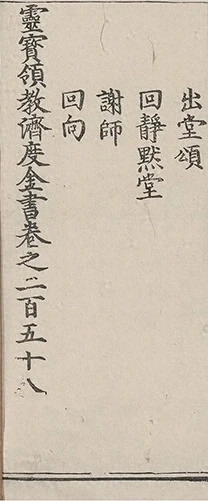 出堂頌
回靜默堂
謝師
回向
靈寶領教濟度金書卷之二百五十八